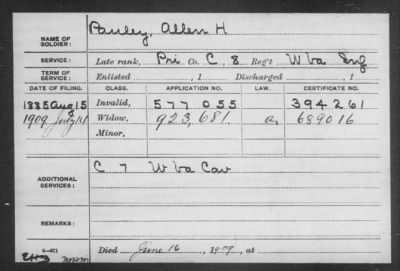 NAME OF SOLDIER: Pauley, Allen H
SERVICE: Late rank, Pri Co. C, 8 Reg't W Va Inf
TERM OF SERVICE: Enlisted , 1 Discharged , 1
DATE OF FILING. CLASS. APPLICATION NO. LAW. CERTIFICATE NO.
1885 Aug 15 Invalid, 577 055 394261
1909 July 14 Widow, 923,681 a, 689016
Minor,
ADDITIONAL SERVICES: C 7 W Va Cav
REMARKS:
Died June 16, 1909, at